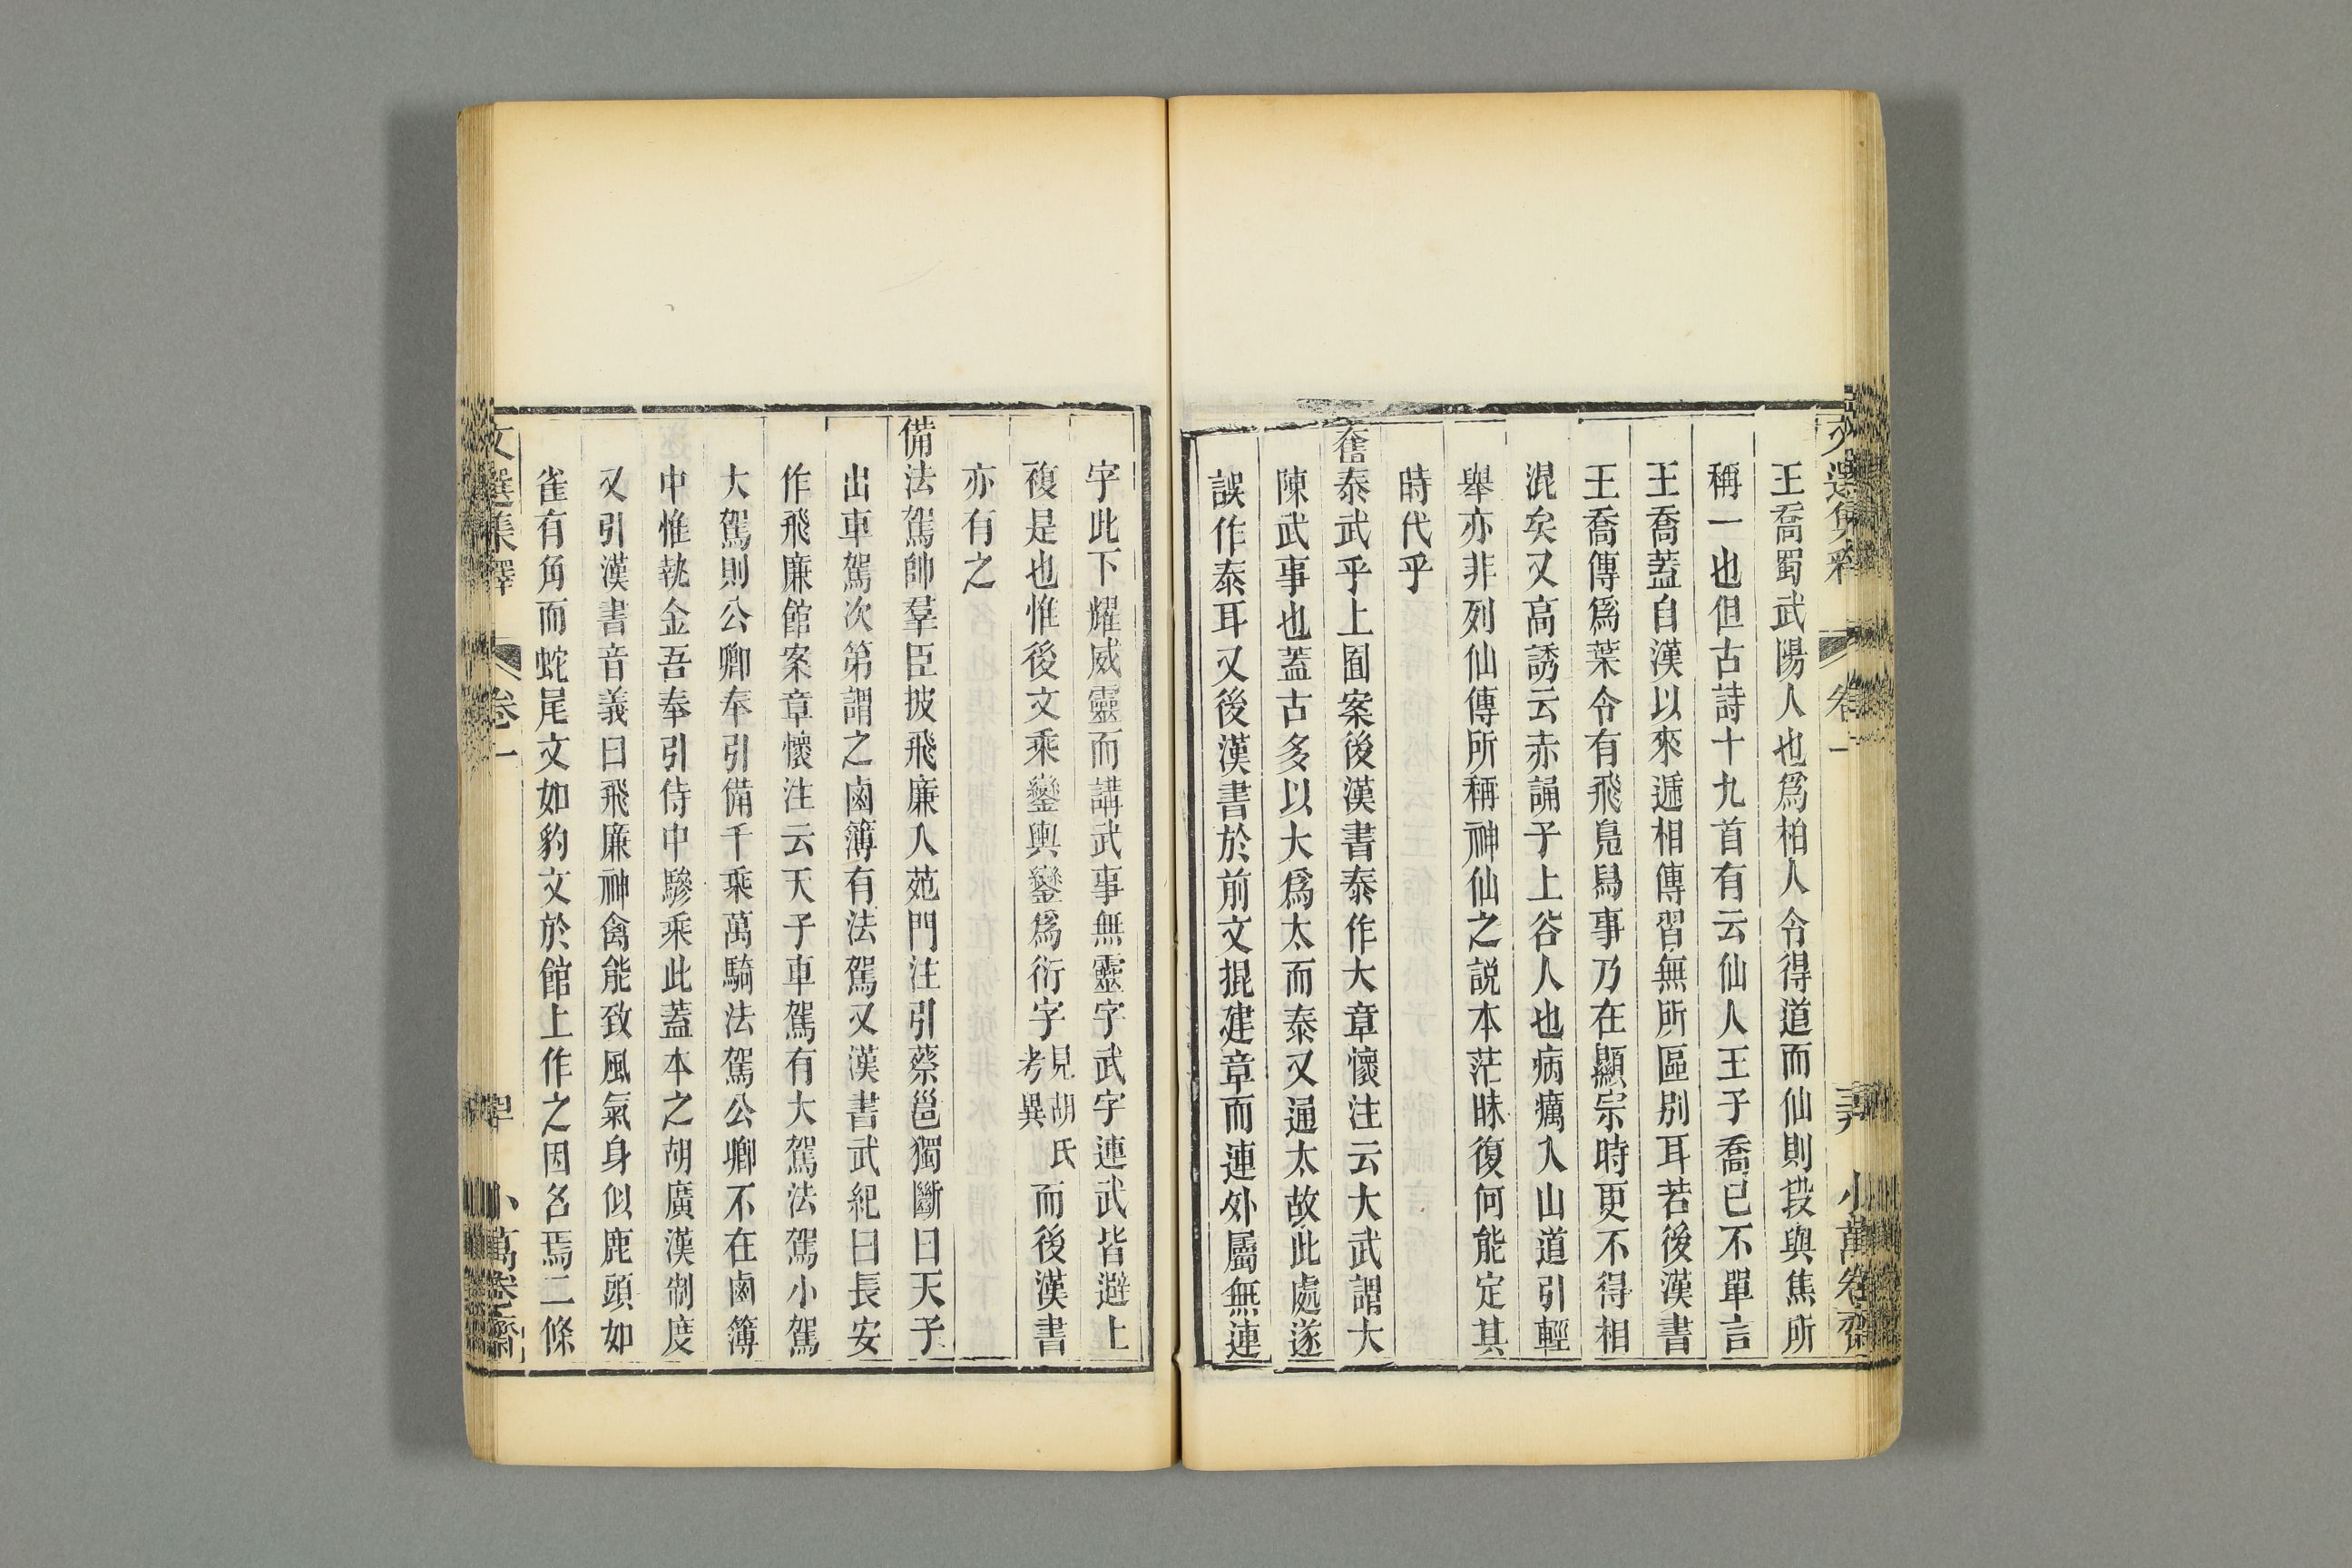 文選集釋 卷一 小萬卷齋
王喬蜀武陽人也爲柏人令得道而仙則㧞與焦所
稱一也但古詩十九首有云仙人王子喬已不單言
王喬蓋自漢以來遞相傳習無所區別耳若後漢書
王喬傳爲葉令有飛鳧舄事乃在顯宗時更不得相
混矣又高誘云赤誦子上谷人也病癘入山道引輕
舉亦非列仙傳所稱神仙之說本茫昧復何能定其
時代乎
奮泰武乎上囿案後漢書泰作大章懷注云大武謂大
陳武事也蓋古多以大爲太而泰又通太故此處遂
誤作泰耳又後漢書於前文掍建章而連外屬無連
字此下耀威靈而講武事無靈字武字連武皆避上
複是也惟後文乘鑾輿鑾爲衍字見胡氏考異而後漢書
亦有之
備法駕帥羣臣披飛廉入苑門注引蔡邕獨斷曰天子
出車駕次第謂之鹵簿有法駕又漢書武紀曰長安
作飛廉館案章懷注云天子車駕有大駕法駕小駕
大駕則公卿奉引備千乘萬騎法駕公卿不在鹵簿
中惟執金吾奉引侍中驂乘此蓋本之胡廣漢制度
又引漢書音義曰飛廉神禽能致風氣身似鹿頭如
雀有角而蛇尾文如豹文於館上作之因名焉二條
文選集釋 卷一 小萬卷齋